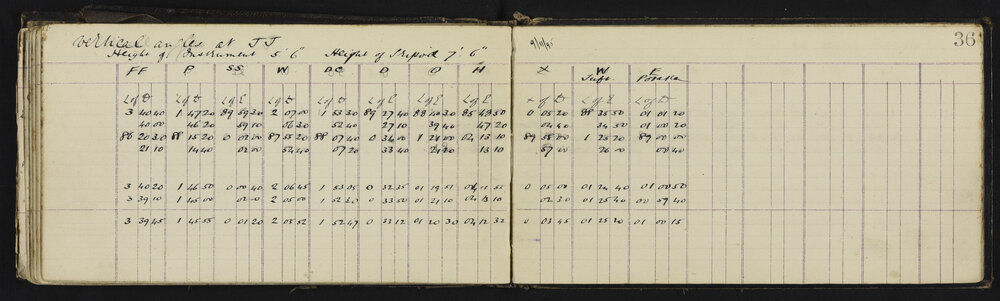 Vertical angles at JJ 9/11/95 36
Height of Instrument 5' 6" Height of Tripod 7' 6"
FF P SS W DC D O H X W F
Jufr. Poraka
L of D L of D L of E L of D L of D L of E L of E L of E L of D L of D L of D
3 40 40 1 47 20 89 59 30 2 07 00 1 53 30 89 27 40 88 40 30 85 48 50 0 05 20 88 35 50 01 01 20
40 00 46 20 59 10 06 30 52 40 27 10 39 40 47 20 04 40 34 50 01 00 20
86 20 30 88 15 20 0 02 00 87 55 20 88 07 40 0 34 00 1 21 00 04 13 10 89 58 00 1 25 20 89 00 00
21 10 14 40 02 00 54 40 07 20 33 40 21 20 13 10 57 00 26 00 00 40
3 40 20 1 46 50 0 00 40 2 06 45 1 53 05 0 32 35 01 19 51 04 11 55 0 05 00 01 24 40 01 00 50
3 39 10 1 45 00 02 00 2 05 00 1 52 30 0 33 50 01 21 10 04 13 10 02 30 01 25 40 00 59 40
3 39 45 1 45 55 0 01 20 2 05 52 1 52 47 0 33 12 01 20 30 04 12 32 0 03 45 01 25 20 01 00 15